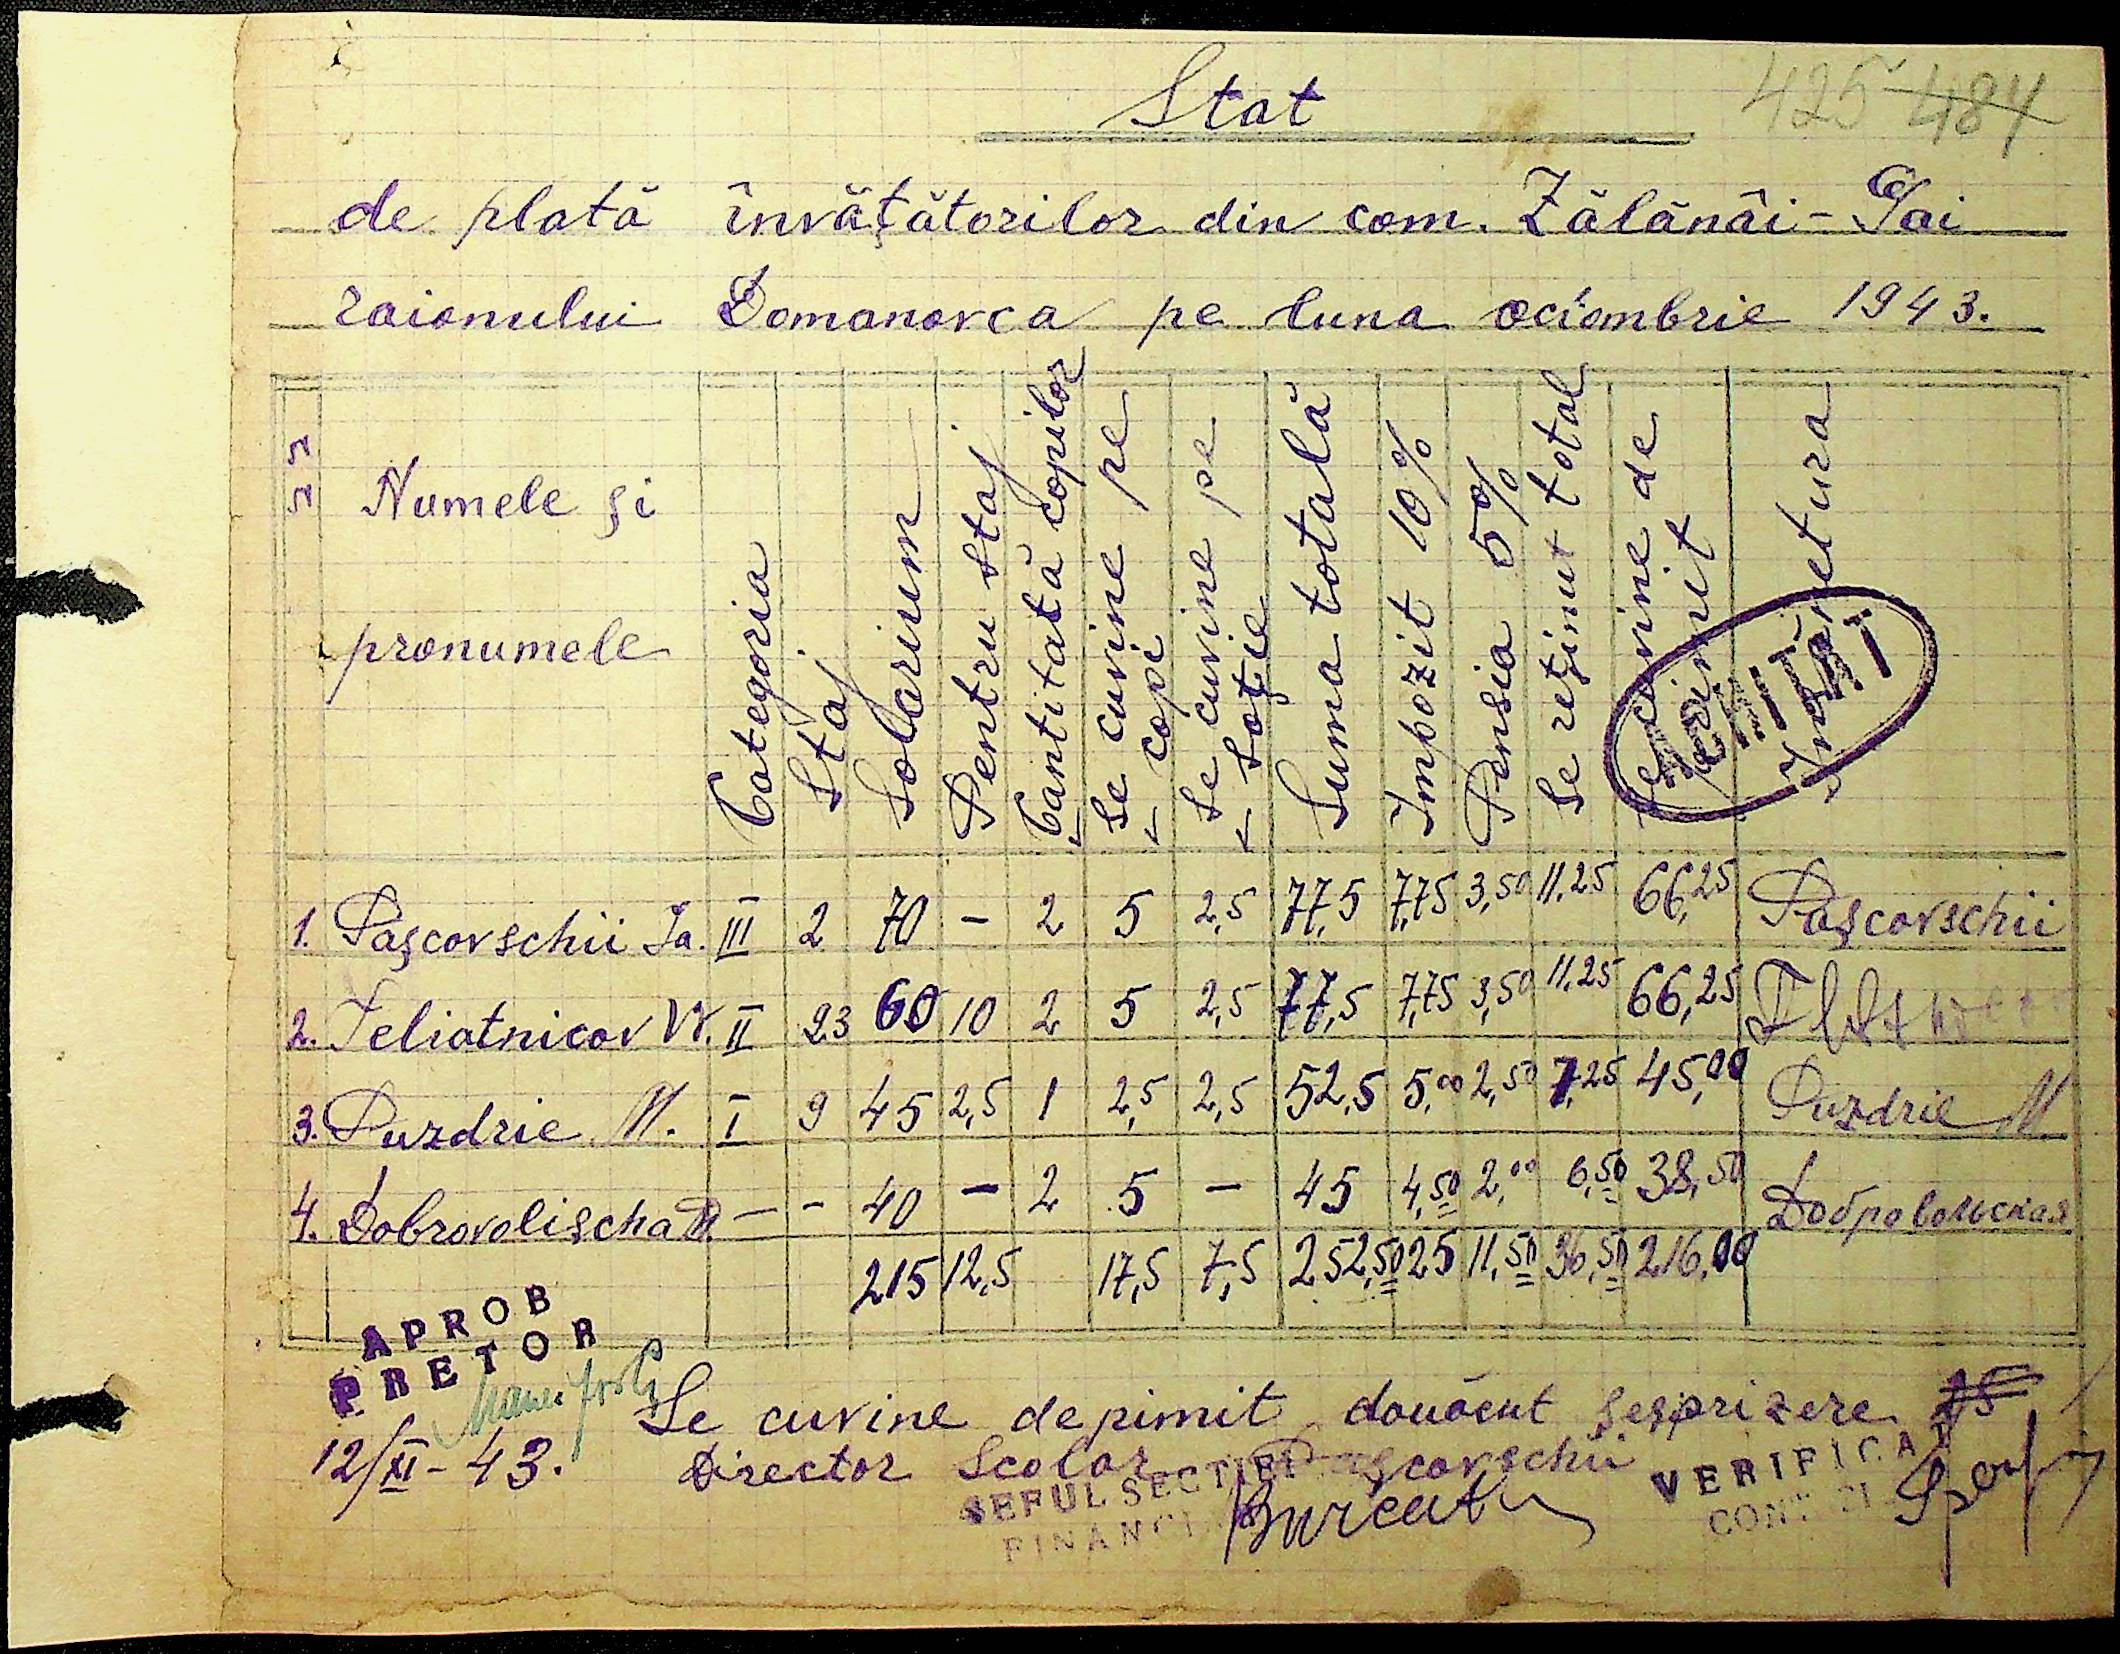 425 484
Stat
de plată învățătorilor din com. Zălănâi-Gai
raionului Domanovca pe luna octombrie 1943.
Numele și pronumele Categoria Staj Solarium Pentru staj Cantitată copilor Se cuvine pe copi Se cuvine pe soție Suma totală Impozit 10% Pensia 5% Se reținut total
1. Pașcovschii Ia. III 2 70 - 2 5 2,5 77,5 7,75 3,50 11,25 66,25 Pașcovschii
2. Teliatnicov V. II 23 60 10 2 5 2,5 77,5 7,75 3,50 11,25 66,25
3. Puzdrie M. I 9 45 2,5 1 2,5 2,5 52,5 5,00 2,50 7,25 45,00 Puzdrie M
4. Dobrovolischa - - 40 - 2 5 - 45 4,50 2,00 6,50 38,50 Добровольская
215 12,5 17,5 7,5 252,50 25 11,50 36,50 216,00
ACHITAT
APROB
PRETOR
12/XI-43.
Se cuvine de pimit douăcut șesprizere 25
Director Scolar Pașcovschii
SEFUL SECTIEI
FINANCI
VERIFICAT